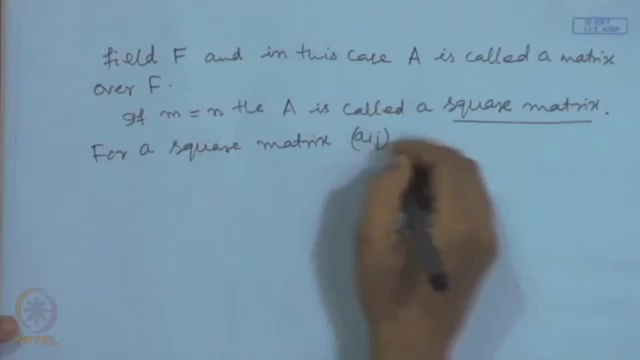 field F and in this case A is called a matrix
over F.
If m = n the A is called a square matrix.
For a square matrix (aij)
NPTEL